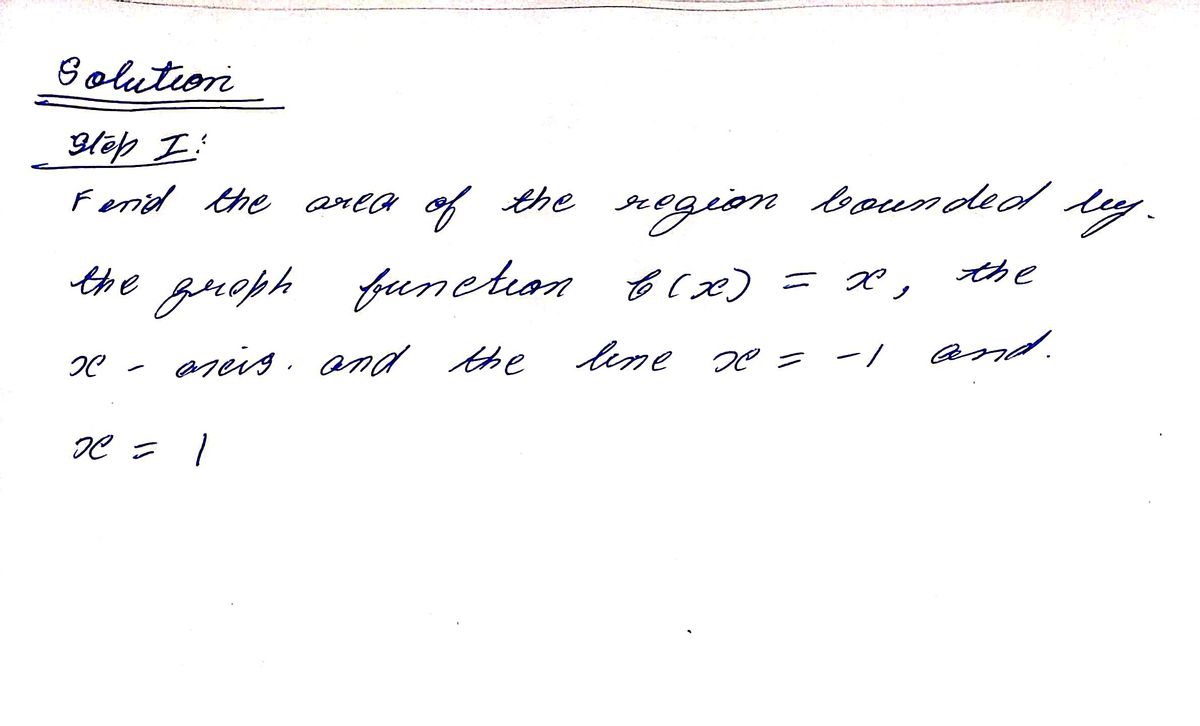 Solution
Step I:
Find the area of the region bounded by.
the graph function f(x) = x, the
x - axis. and the line x = -1 and.
x = 1